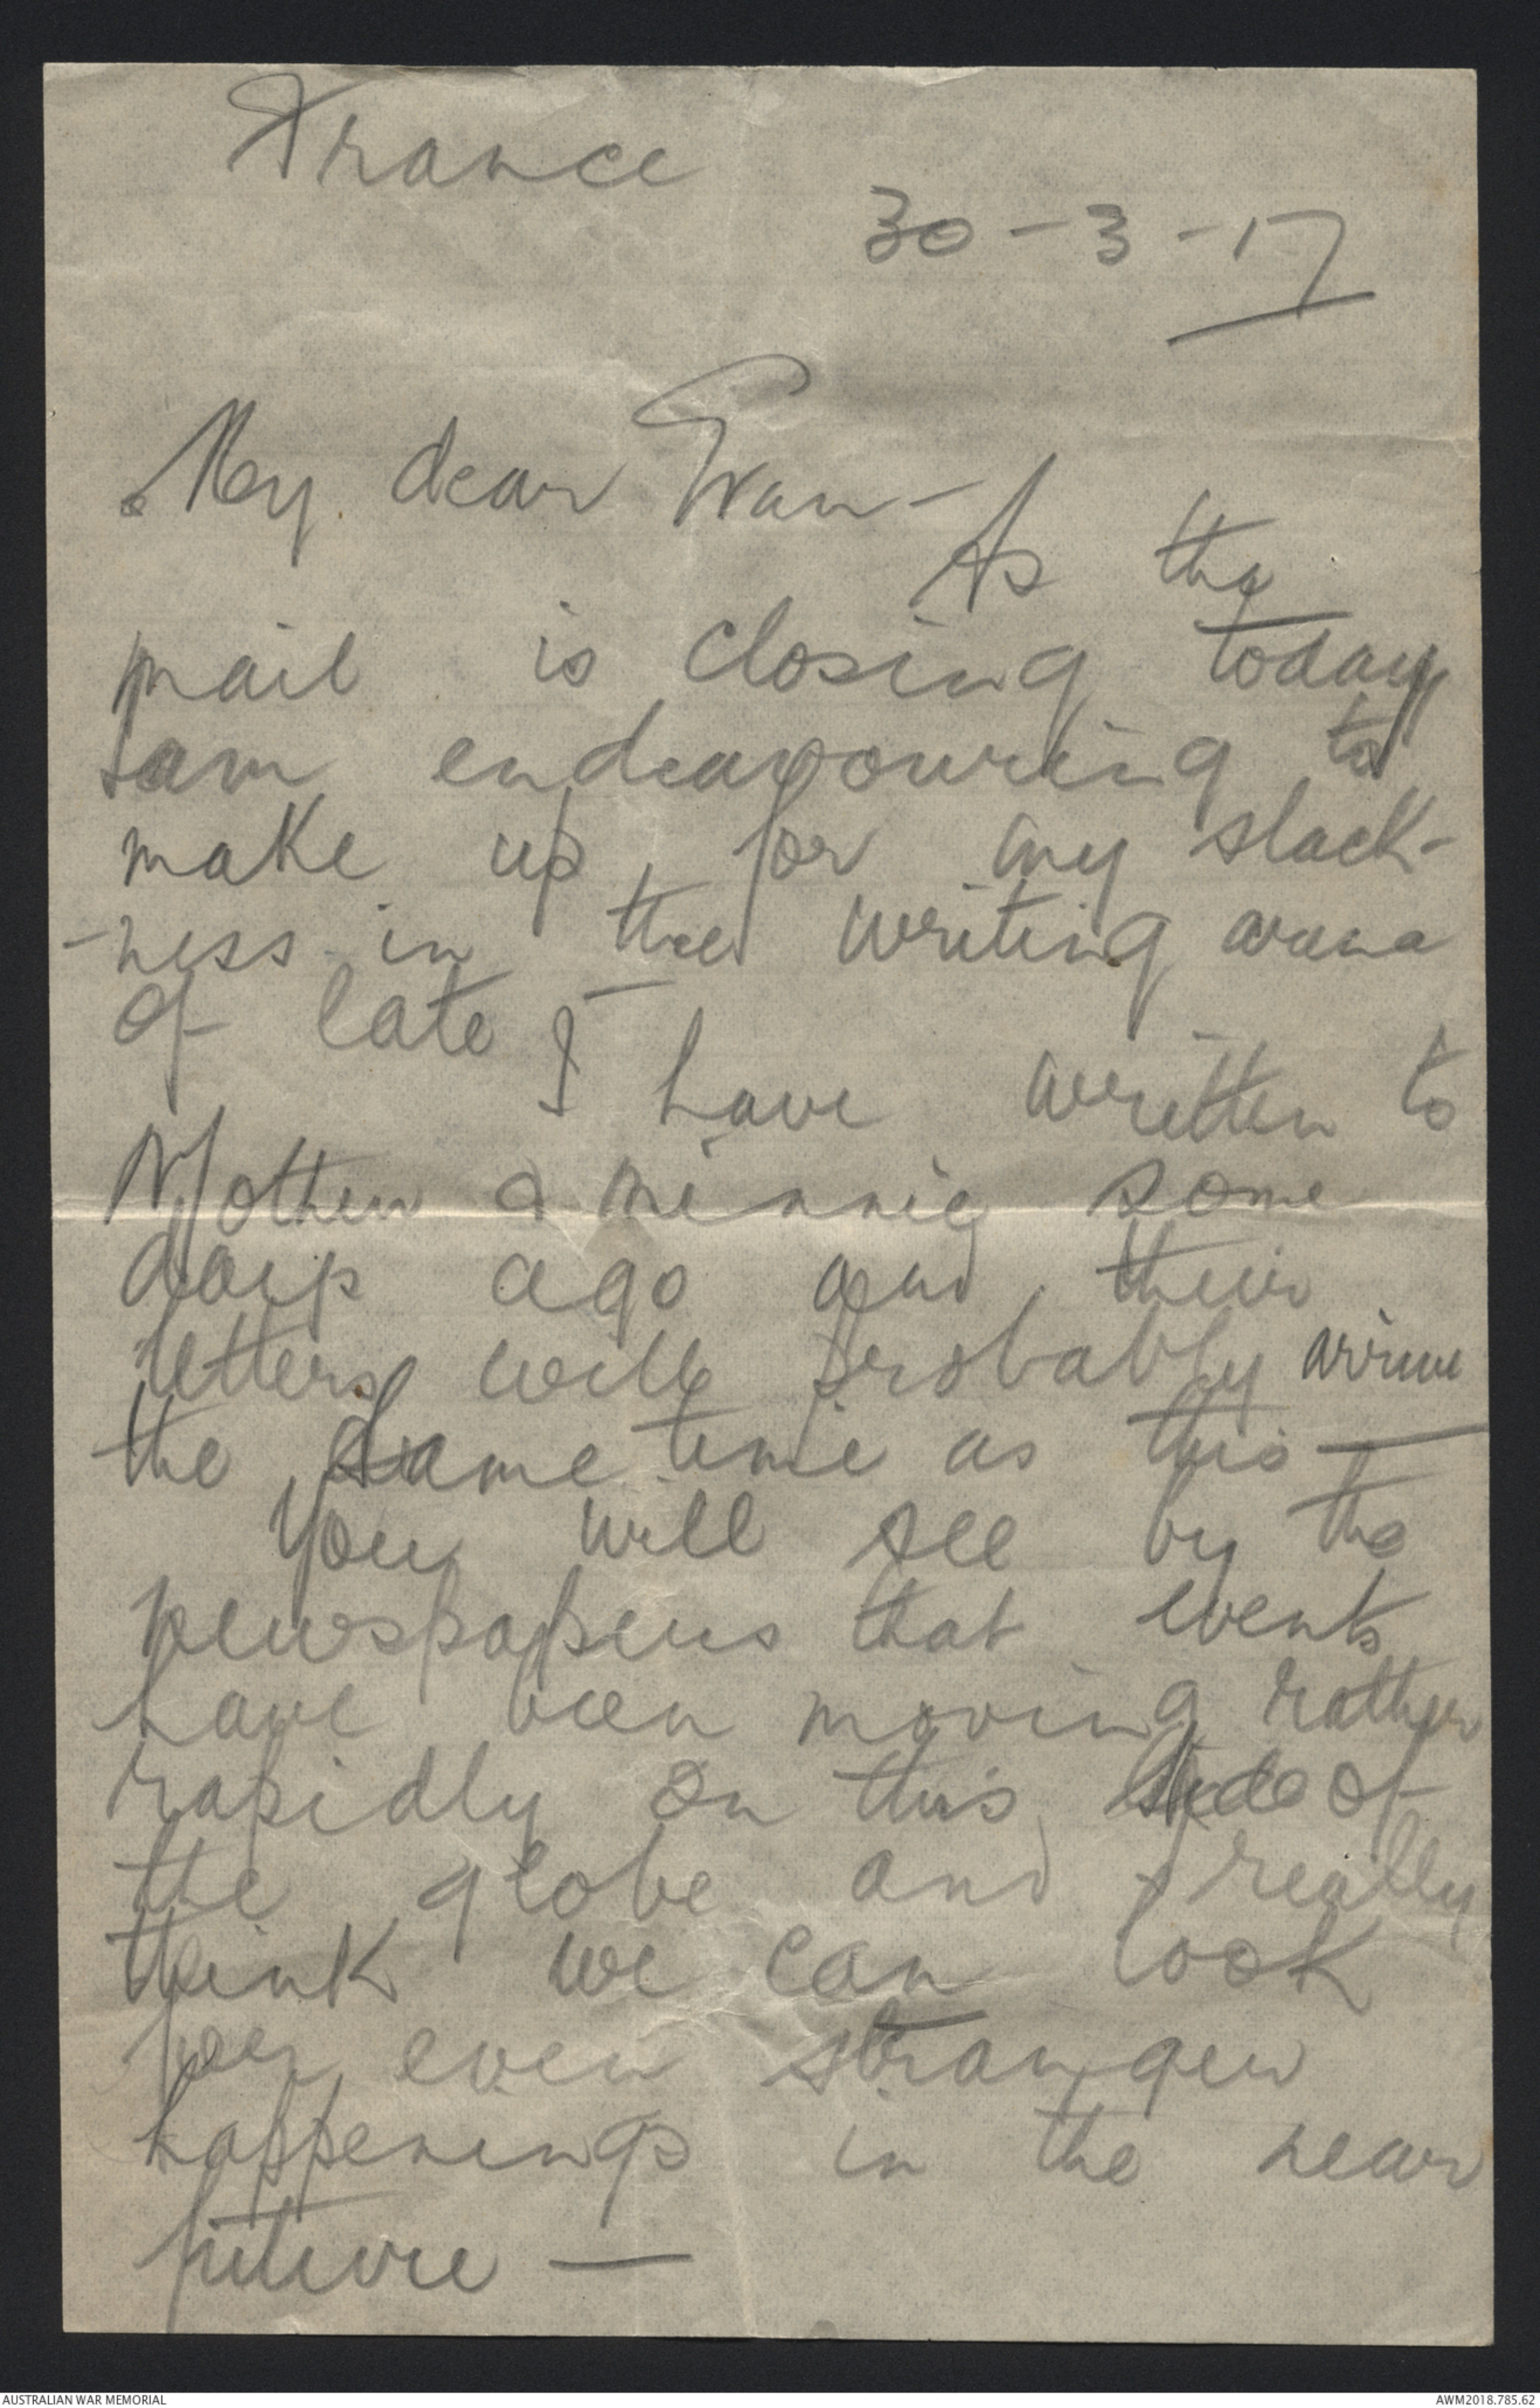 France
30-3-17
My dear Fran-
As the
mail is closing today
I am endeavouring to
make up for my slack-
-ness in the writing arena
of late -
I have written to
Mother & Minnie some
days ago and their
letters will probably arrive
the same time as this -
You will see by the
newspapers that events
have been moving rather
rapidly on this side of
the globe and I really
think we can look
for even stranger
happenings in the near
future -
AUSTRALIAN WAR MEMORIAL
AWM2018.785.62